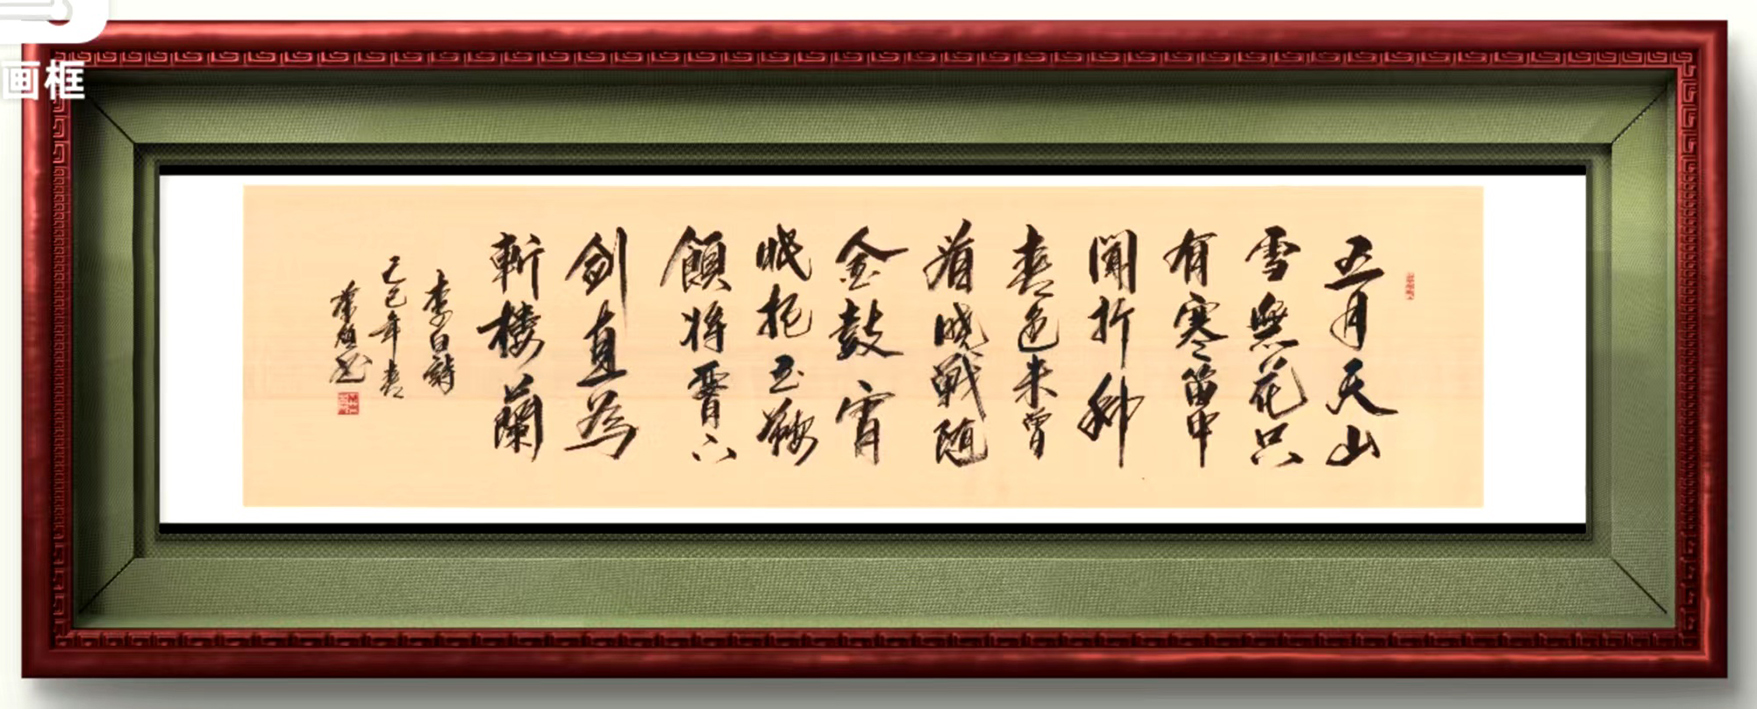 画框
五月天山
雪無花只
有寒笛中
聞折柳
春色未曾
看曉戰随
金鼓宵
眠抱玉鞍
願将腰下
劍直為
斬樓蘭
李白詩
乙巳年春